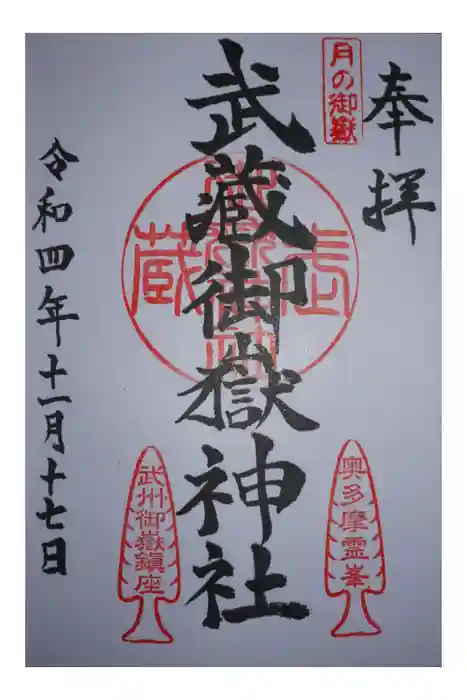 奉拝
月の御嶽
武蔵御嶽神社
奥多摩霊峯
武州御嶽鎮座
令和四年十一月十七日